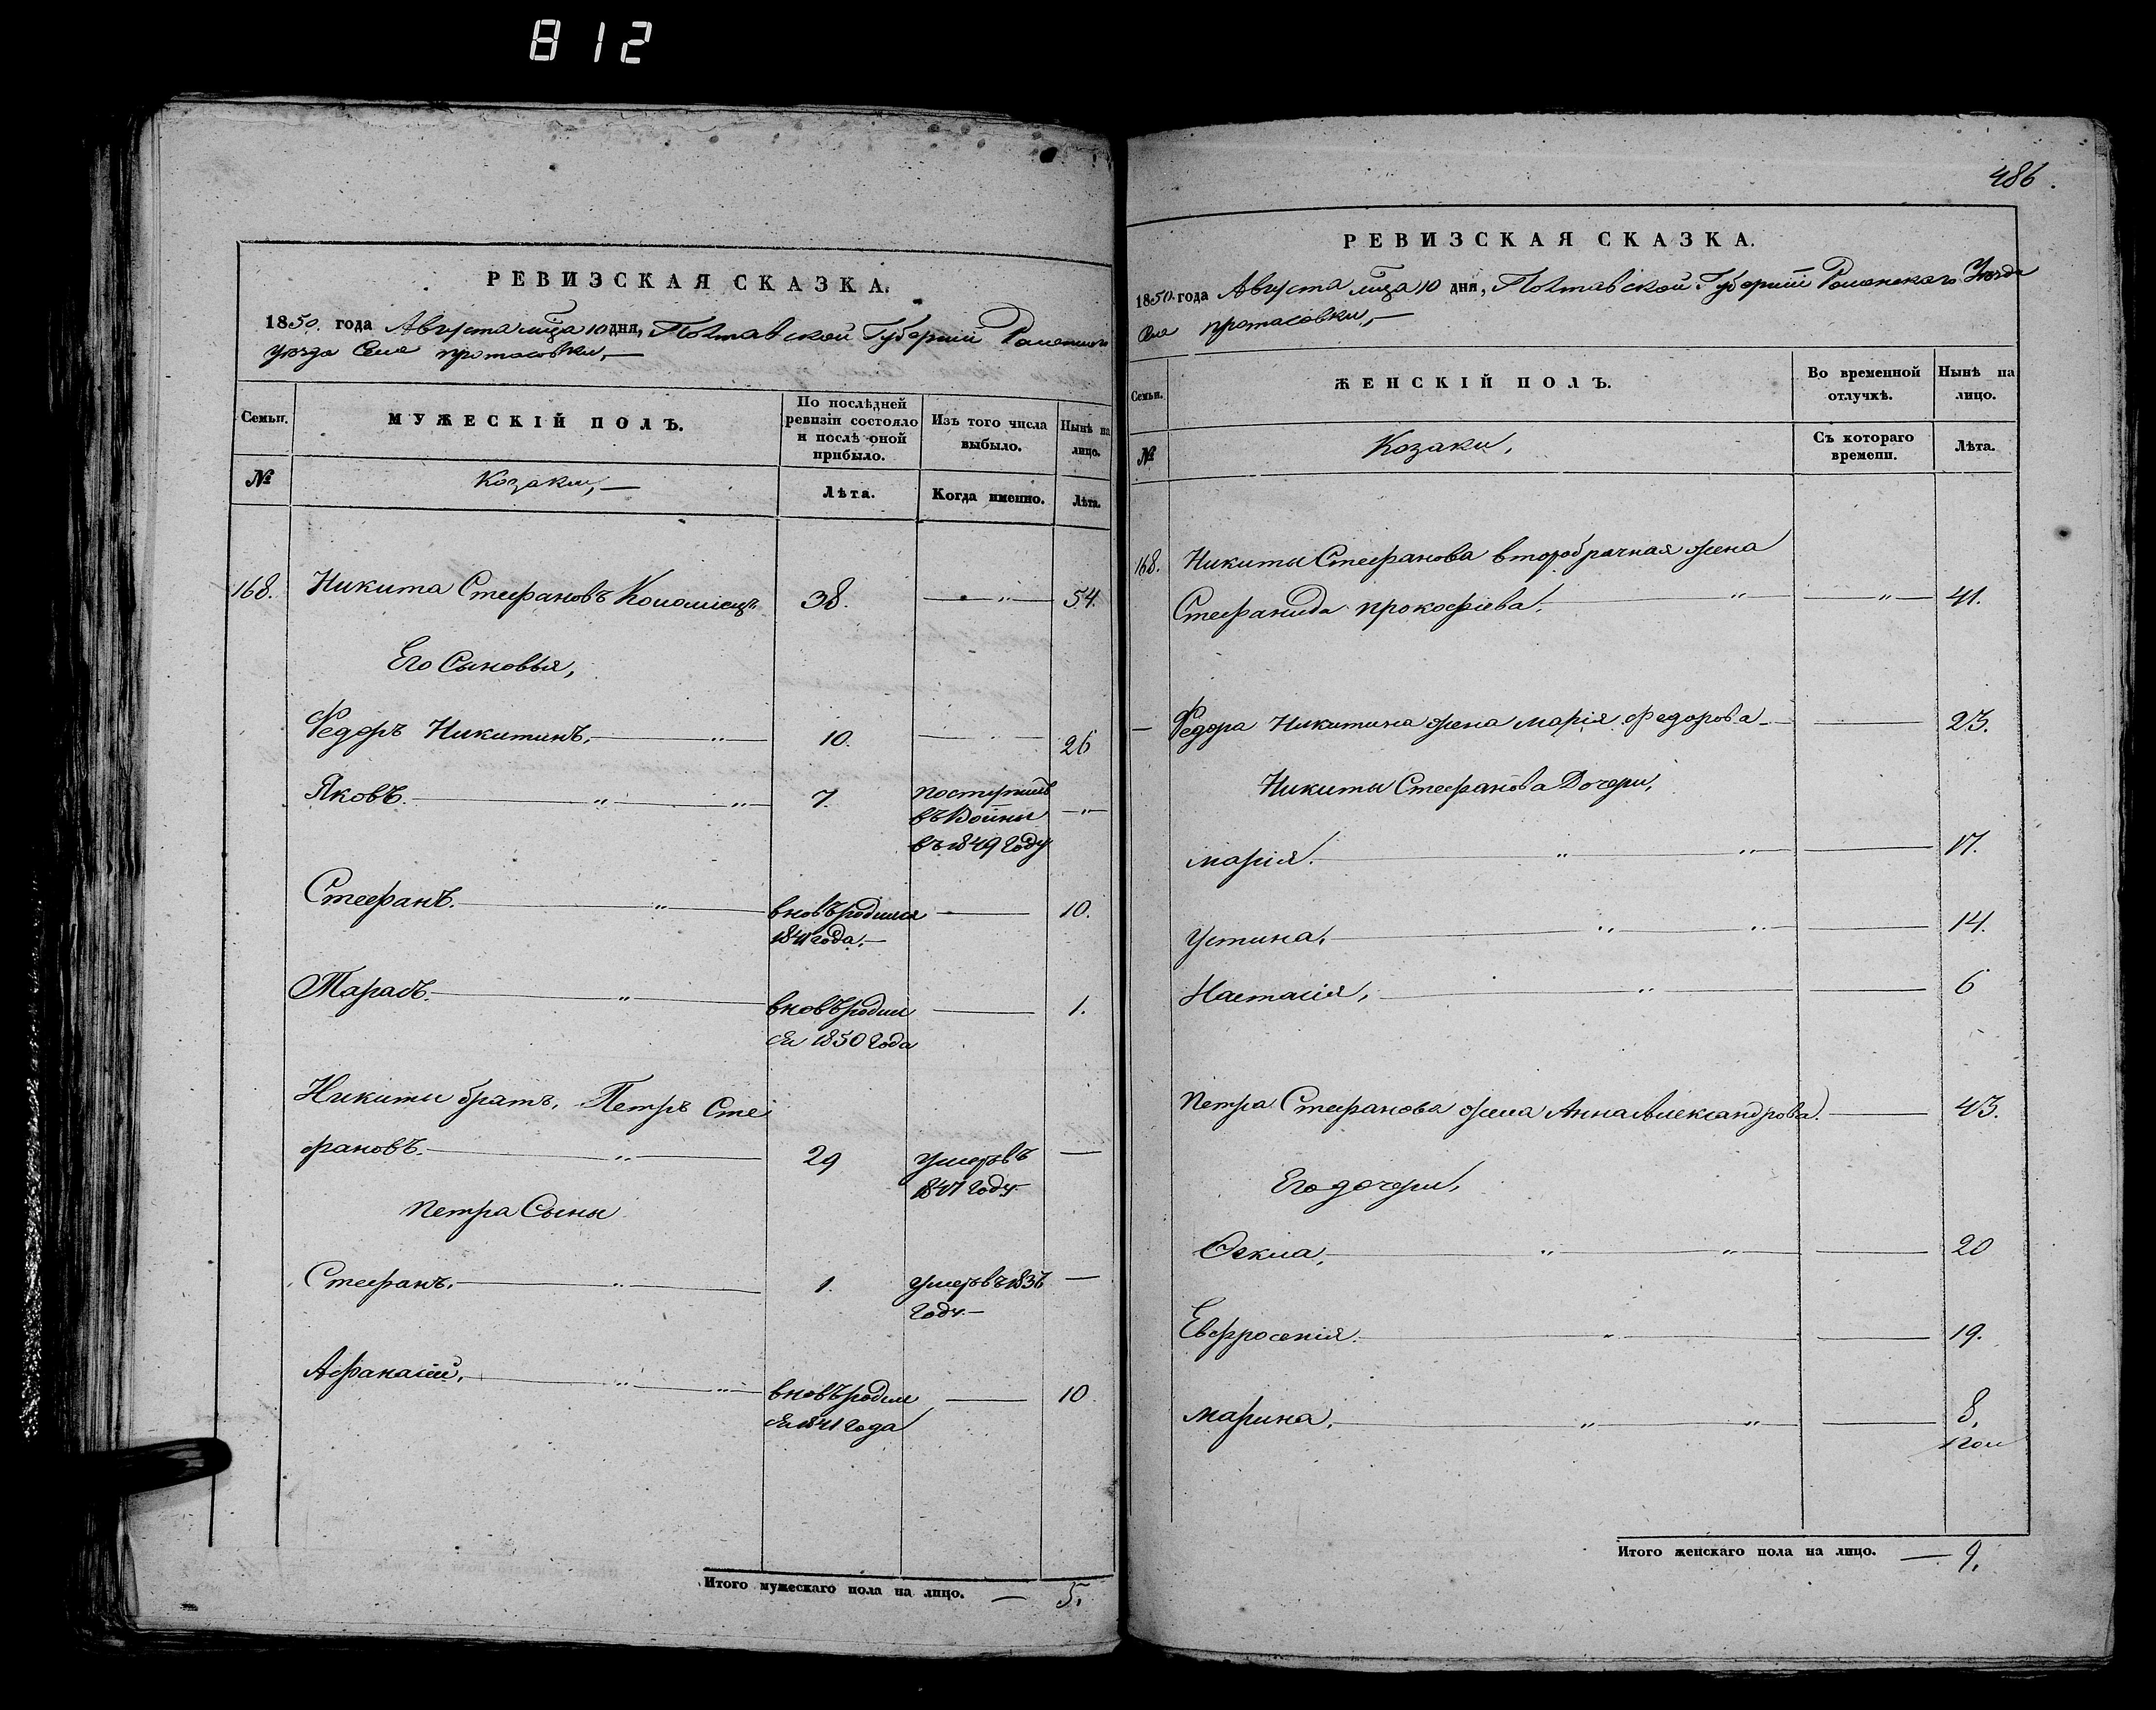 812
РЕВИЗСКАЯ СКАЗКА.
1850. года Августа мца 10 дня, Полтавской Губернии Роменскаго
уезда Села протасовки,—
Семьи.
МУЖЕСКІЙ ПОЛЪ.
По послѣдней ревизіи состояло и послѣ оной прибыло.
Изъ того числа выбыло.
Нынѣ на лицо.
№
Козаки,—
Лѣта.
Когда именно.
Лѣта.
168. Никита Стефановъ Коломіецъ 38. — „ — 54.
Его Сыновья,
Федоръ Никитинъ. — „ — 10. — 26
Яковъ. — „ — „ — 7. поступилъ — „ —
въ Воины
въ 1849 Году
Стефанъ. — „ — вновьродился — 10.
1841 года.—
Тарасъ. — „ — вновьродил — 1.
ся 1850 Года
Никиты братъ, Петръ Сте
фановъ. — „ — 29 умеръ въ —
1847 Году.
Петра Сыны
Стефанъ. — „ — 1. умеръ въ 1836 —
Году.—
Афанасій, — „ — „ — вновьродил — 10.
ся 1841 Года
Итого мужескаго пола на лицо. — 5.
486.
РЕВИЗСКАЯ СКАЗКА.
1850. года Августа мца 10 дня, Полтавской Губерній Роменскаго Уезда
Села протасовки,—
Семьи.
ЖЕНСКІЙ ПОЛЪ.
Во временной отлучкѣ.
Нынѣ на лицо.
№
Козаки,
Съ котораго времени.
Лѣта.
168. Никиты Стефанова второбрачная жена
Стефанида прокофіева. — „ — „ — 41.
— Федора Никитина жена Марія Федорова — — 23.
Никиты Стефанова Дочери,
марія. — „ — „ — — 17.
Устина. — „ — „ — — 14.
Настасія, — „ — — 6
Петра Стефанова жена Анна Александрова. — 43.
Его дочери,
Фекла, — „ — „ — — 20
Евфросенія. — „ — — 19.
марина, — „ — „ — — 8,
Итого женскаго пола на лицо. — 9.